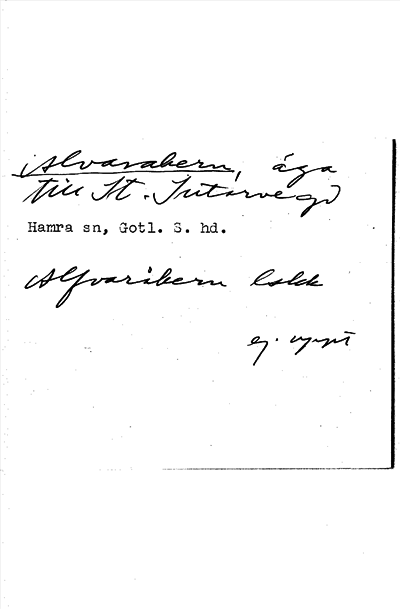 Alvarakern, äga
till St. Sutarve gd
Hamra sn, Gotl. S. hd.
Alfvaråkern lskk
ej uppt